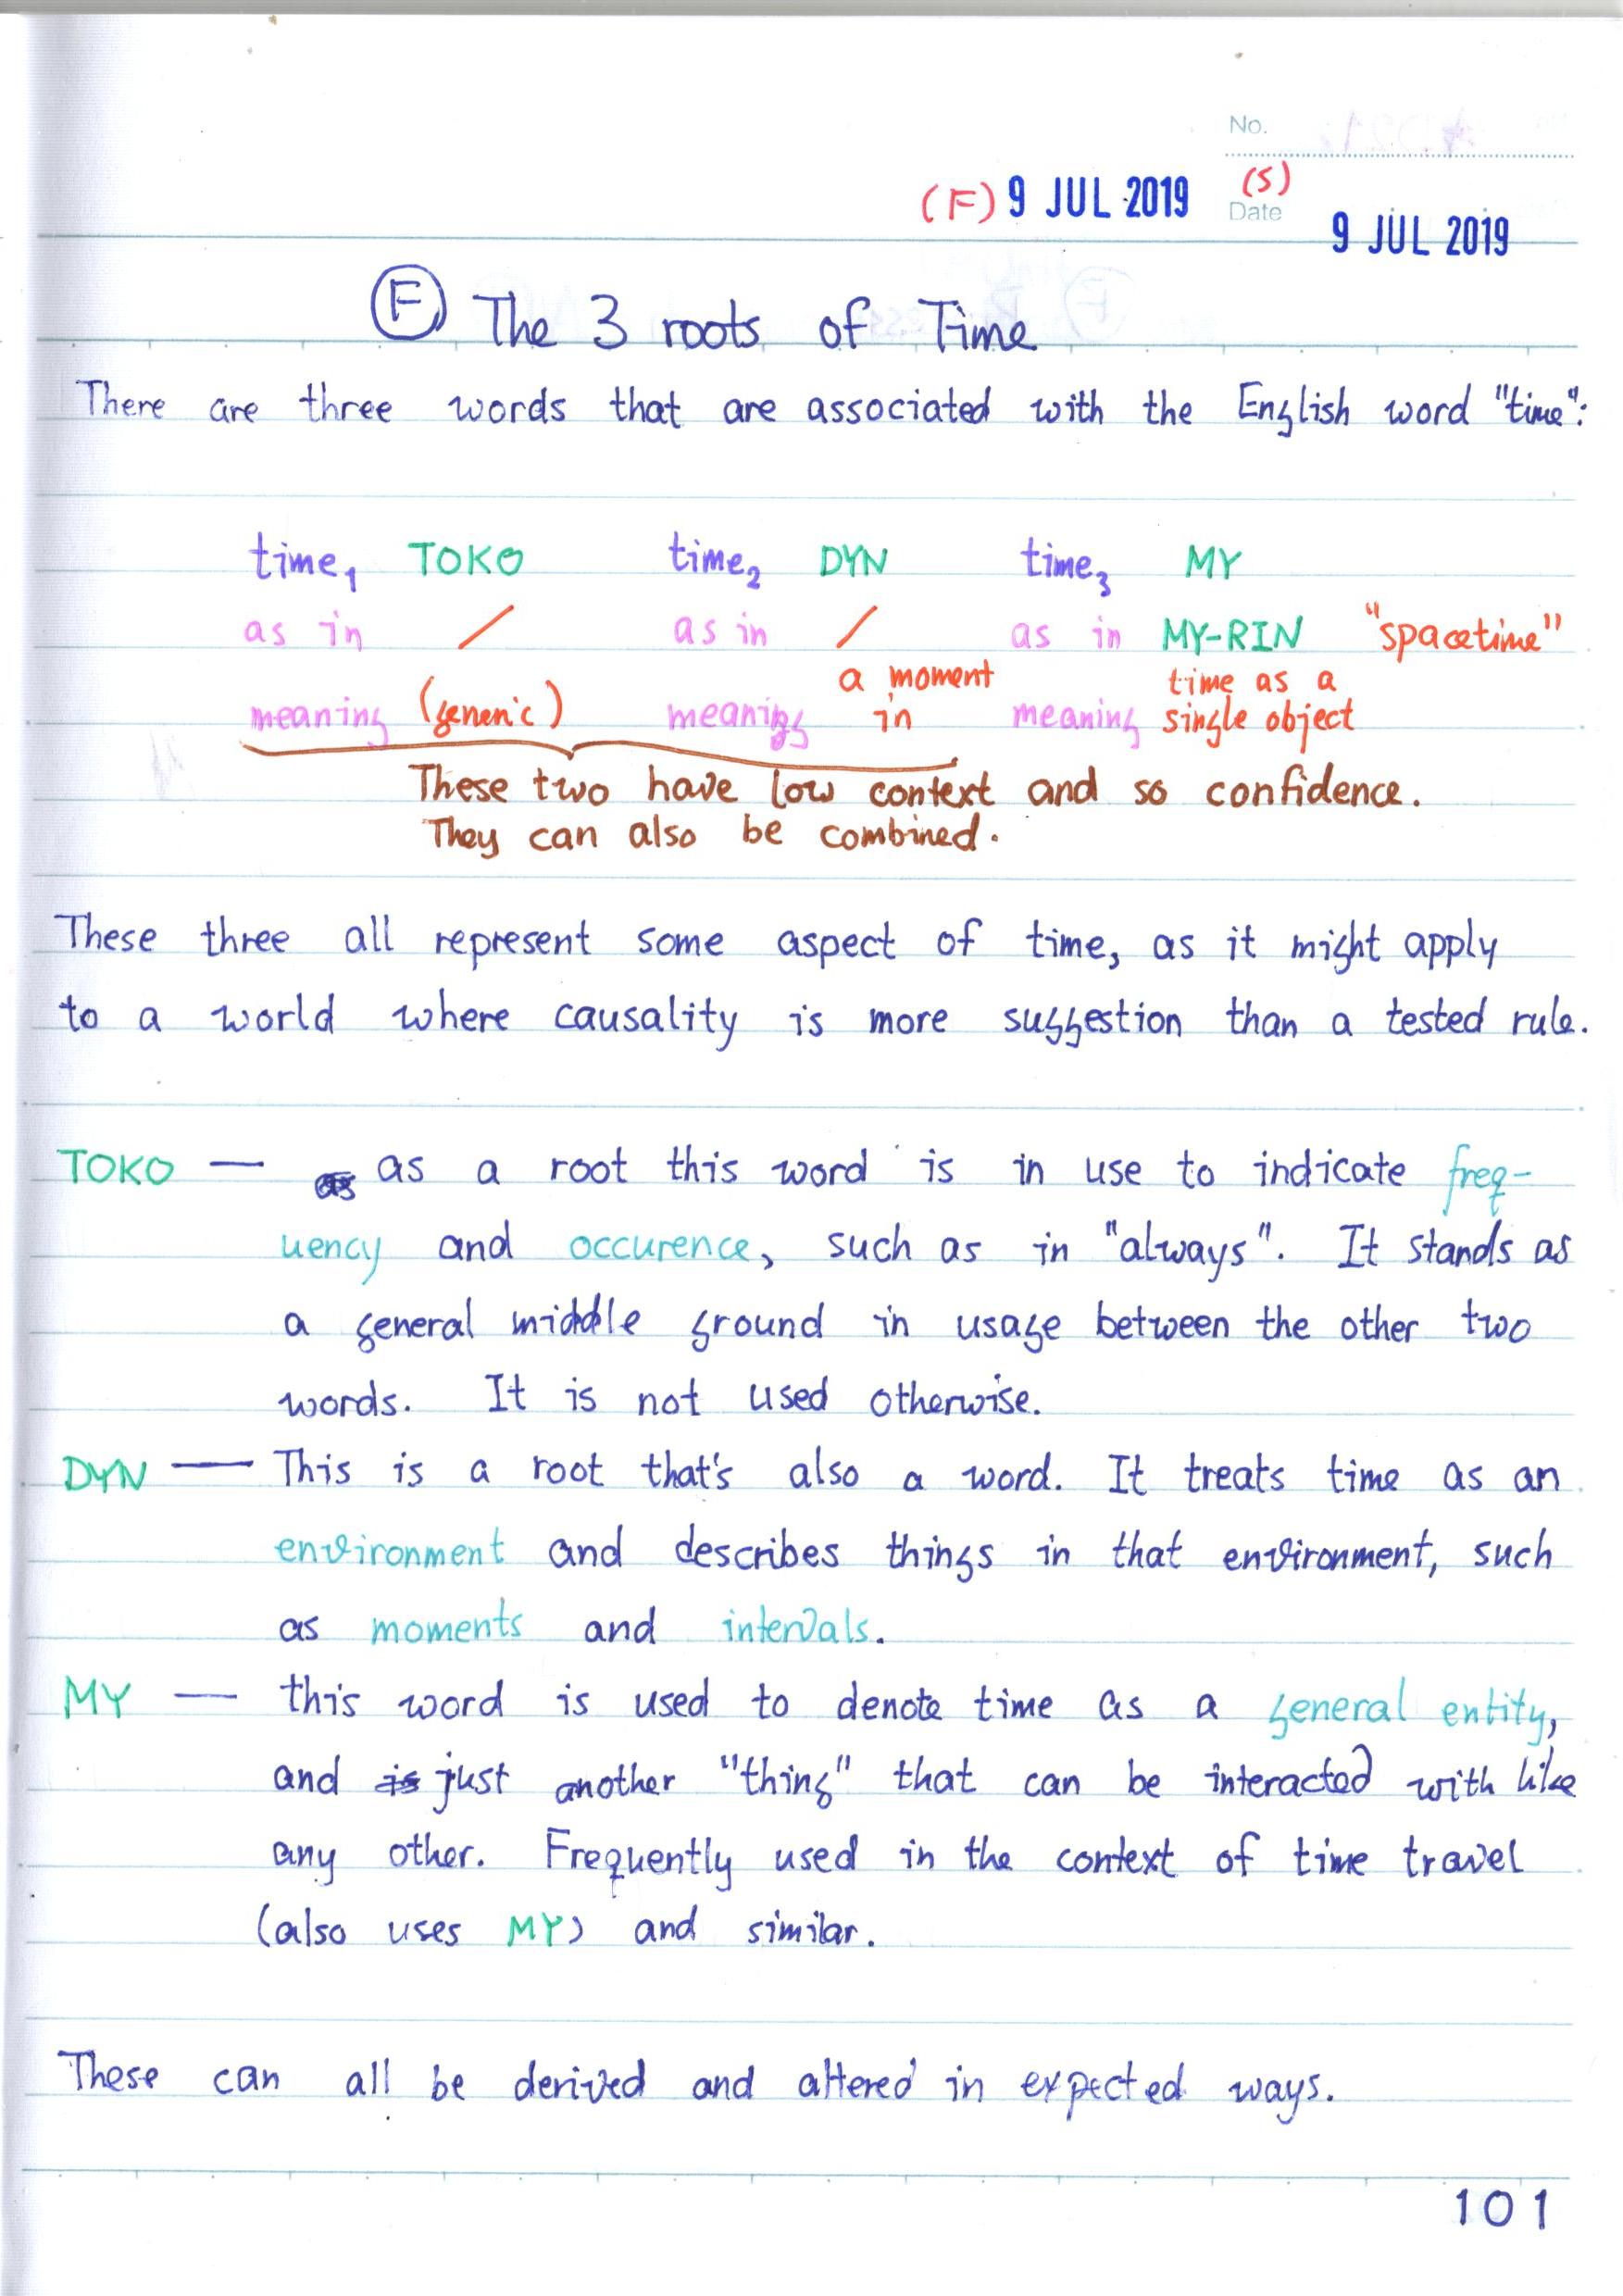 No.
(F) 9 JUL 2019 (S)
Date 9 JUL 2019
F The 3 roots of Time
There are three words that are associated with the English word "time":
time₁ TOKO time₂ DYN time₃ MY
as in / as in / as in MY-RIN "spacetime"
meaning (generic) meaning a moment in meaning time as a single object
These two have low context and so confidence.
They can also be combined.
These three all represent some aspect of time, as it might apply
to a world where causality is more suggestion than a tested rule.
TOKO — as a root this word is in use to indicate freq-
uency and occurence, such as in "always". It stands as
a general middle ground in usage between the other two
words. It is not used otherwise.
DYN — This is a root that's also a word. It treats time as an
environment and describes things in that environment, such
as moments and intervals.
MY — this word is used to denote time as a general entity,
and is just another "thing" that can be interacted with like
any other. Frequently used in the context of time travel
(also uses MY) and similar.
These can all be derived and altered in expected ways.
101